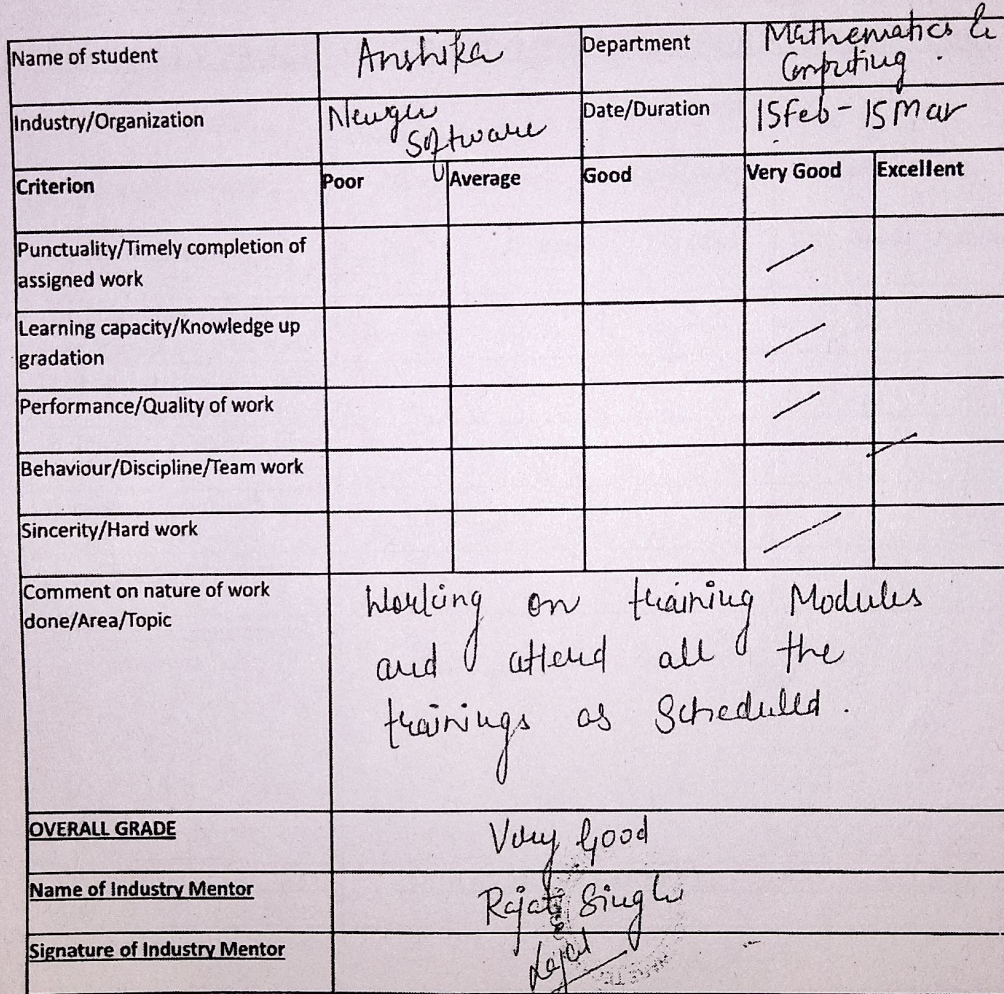 Name of student Anshika Department Mathematics &
Computing.
Industry/Organization Newgen Date/Duration 15 Feb - 15 Mar
Software
Criterion Poor Average Good Very Good Excellent
Punctuality/Timely completion of
assigned work
Learning capacity/Knowledge up
gradation
Performance/Quality of work
Behaviour/Discipline/Team work
Sincerity/Hard work
Comment on nature of work
done/Area/Topic
Working on training Modules
and attend all the
trainings as Scheduled.
OVERALL GRADE Very Good
Name of Industry Mentor Rajat Singh
Signature of Industry Mentor